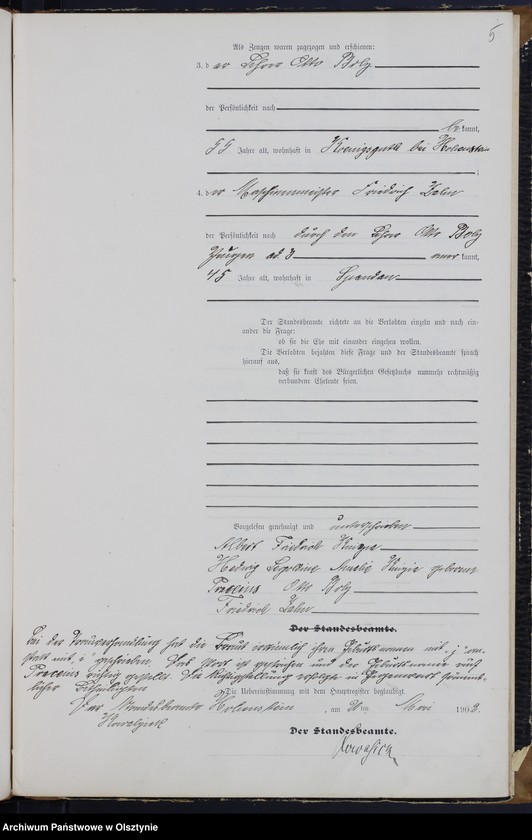 5
Als Zeugen waren zugezogen und erschienen:
3. der Lehrer Otto Bolz
der Persönlichkeit nach
be kannt,
55 Jahre alt, wohnhaft in Koenigsgut bei Hohenstein
;
4. der Maschinenmeister Friedrich Zahn
der Persönlichkeit nach durch den Lehrer Otto Bolz
Zeugen ad. 3 aner kannt,
45 Jahre alt, wohnhaft in Spandau
Der Standesbeamte richtete an die Verlobten einzeln und nach ein-
ander die Frage:
ob sie die Ehe mit einander eingehen wollen.
Die Verlobten bejahten diese Frage und der Standesbeamte sprach
hierauf aus,
daß sie kraft des Bürgerlichen Gesetzbuchs nunmehr rechtmäßig
verbundene Eheleute seien.
Vorgelesen, genehmigt und unterschrieben
Albert Friedrich
Hedwig Amalie geborene
Otto Bolz
Friedrich Zahn
Der Standesbeamte.
Bei der Verhandlung hat die Braut ihren Geburtsnamen mit „j“ an-
statt mit „i“ geschrieben. Das Wort ist gestrichen und der Geburtsname
richtig gesetzt. Die Richtigstellung erfolgte in Gegenwart sämmt-
licher Betheiligten
Die Uebereinstimmung mit dem Hauptregister beglaubigt.
Der Standesbeamte Hohenstein, am 20 ten Mai 1902.
Kowalzick
Der Standesbeamte.
Kowalzick
Archiwum Państwowe w Olsztynie